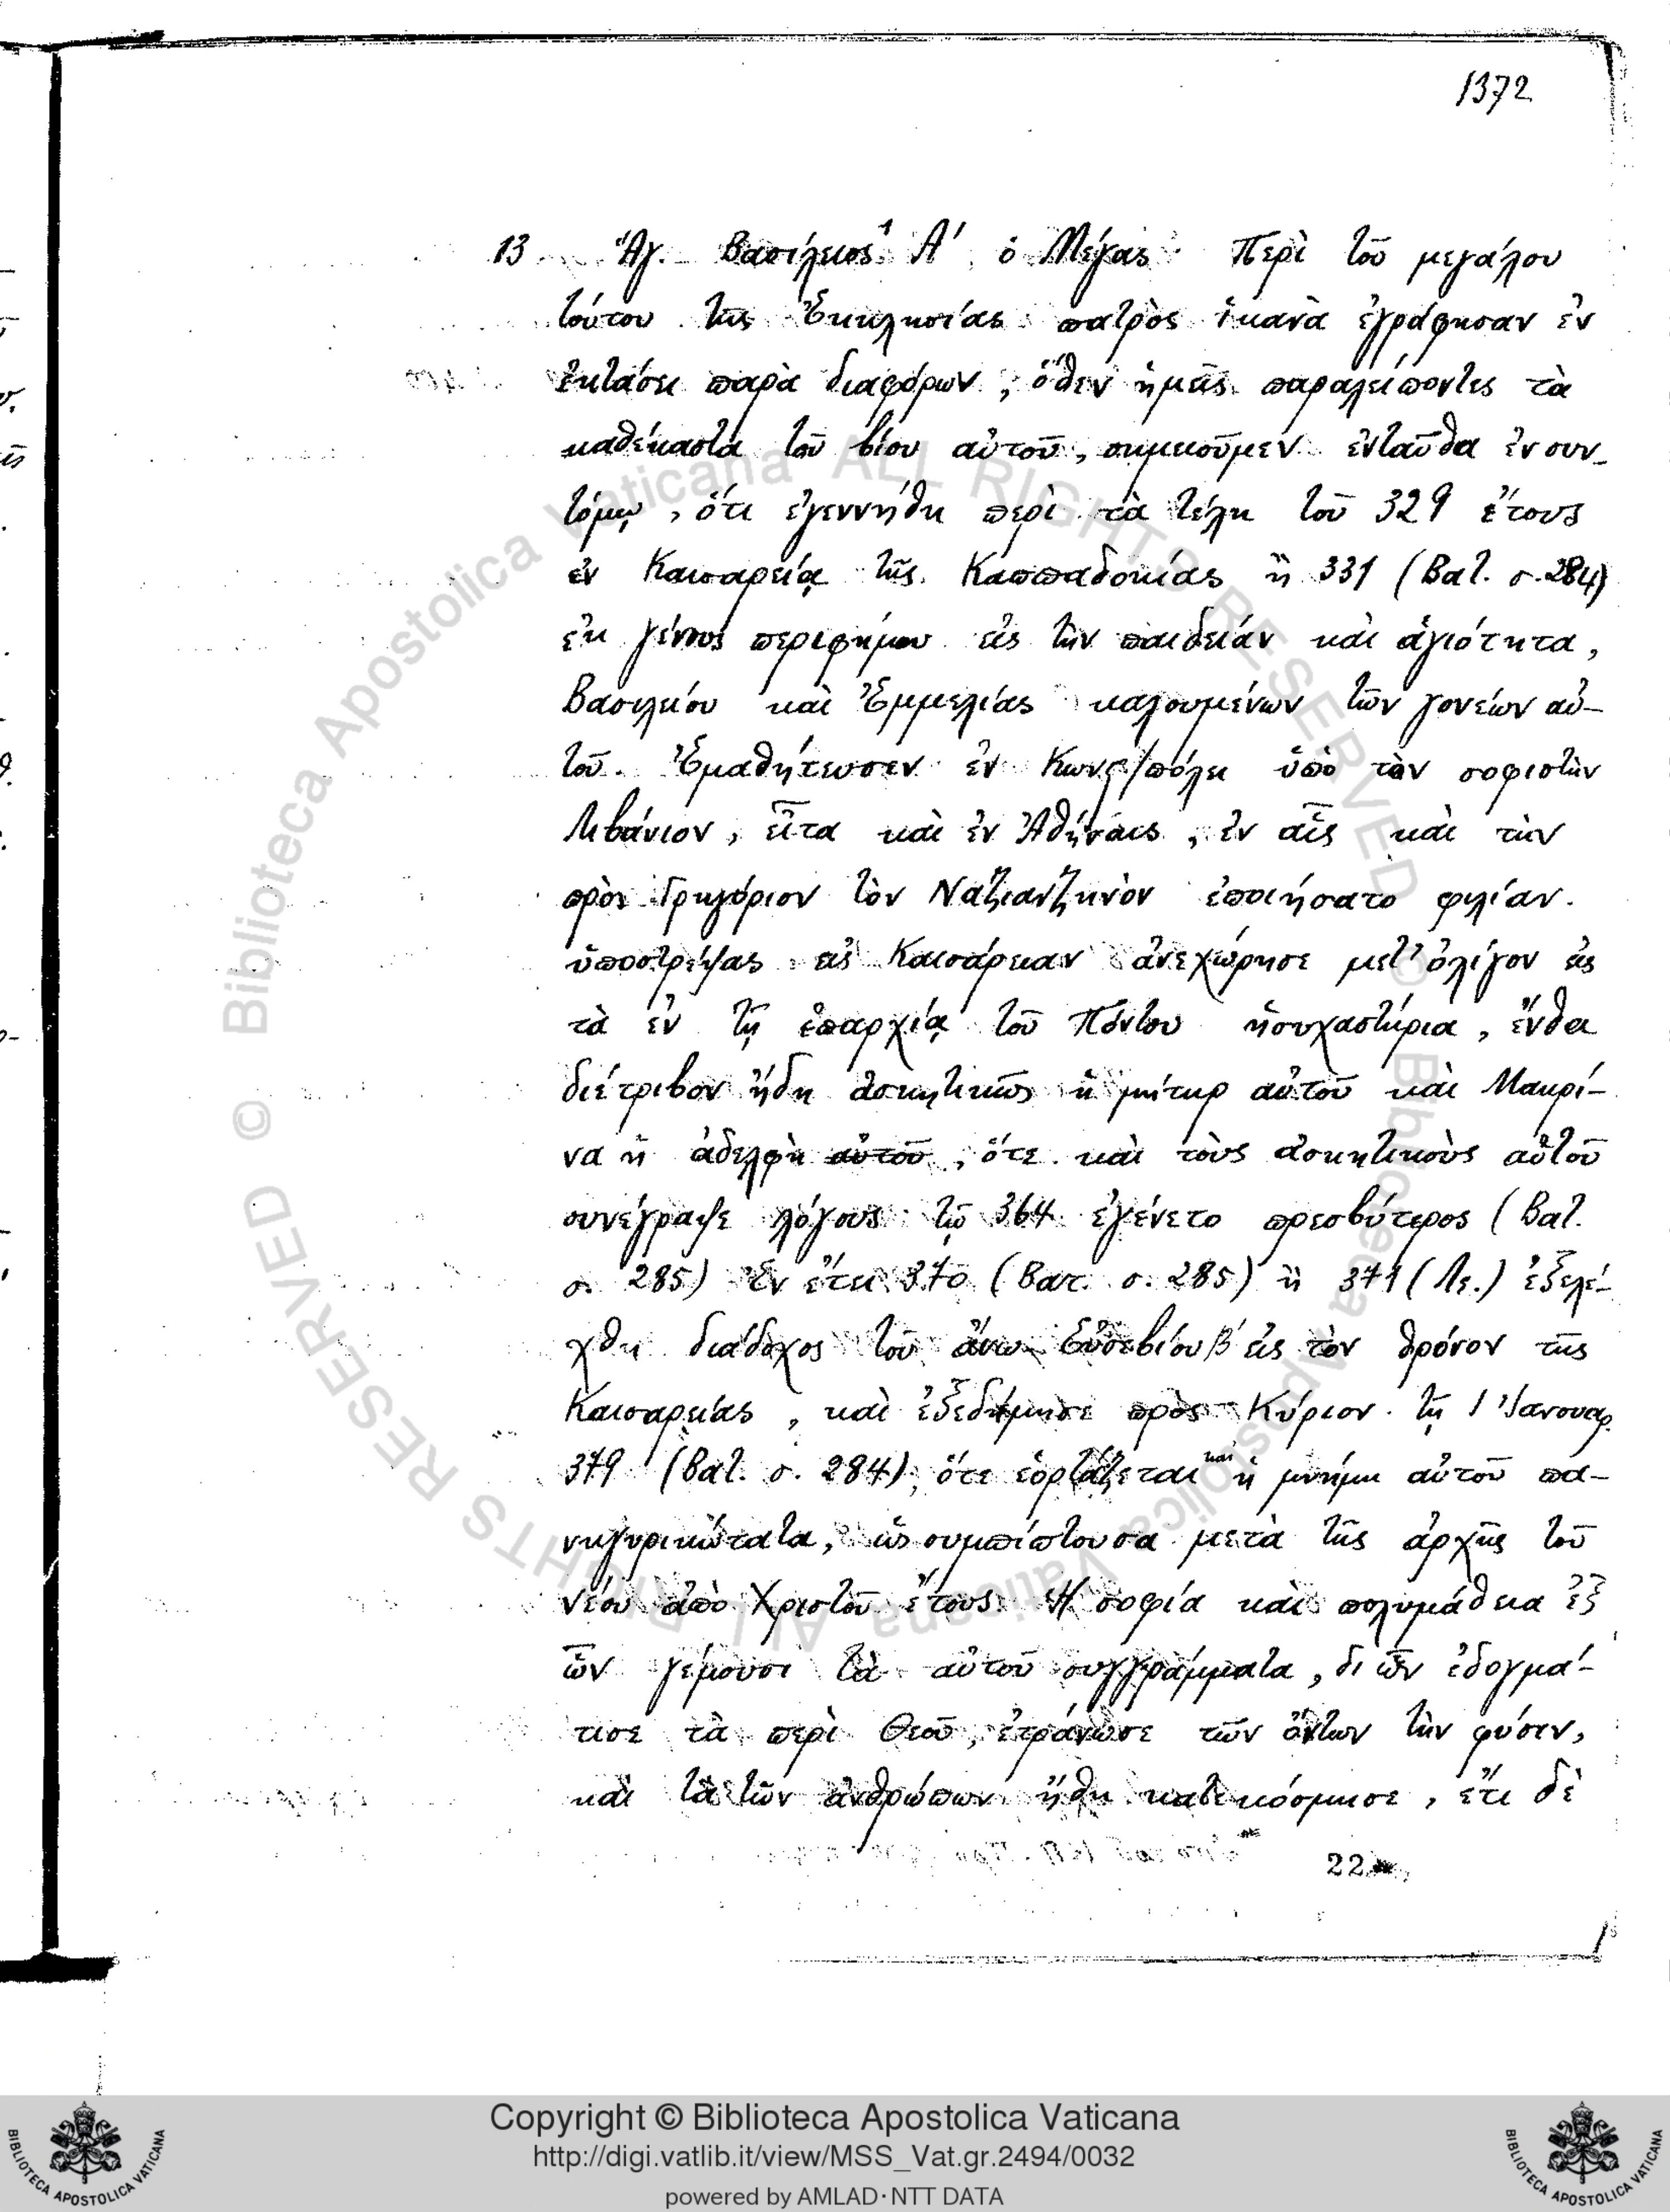 1372
13 Ἅγ. Βασίλειος Α΄ ὁ Μέγας· Περὶ τοῦ μεγάλου
τούτου τῆς Ἐκκλησίας πατρὸς ἱκανὰ ἐγράφησαν ἐν
ἐκτάσει παρὰ διαφόρων, ὅθεν ἡμεῖς παραλείποντες τὰ
καθέκαστα τοῦ βίου αὐτοῦ, σημειοῦμεν ἐνταῦθα ἐν συν-
τόμῳ, ὅτι ἐγεννήθη περὶ τὰ τέλη τοῦ 329 ἔτους
ἐν Καισαρείᾳ τῆς Καππαδοκίας ἢ 331 (Βατ. σ. 284)
ἐκ γένους περιφήμου εἰς τὴν παιδείαν καὶ ἁγιότητα,
Βασιλείου καὶ Ἐμμελίας καλουμένων τῶν γονείων αὐ-
τοῦ. Ἐμαθήτευσεν ἐν Κων/πόλει ὑπὸ τὸν σοφιστὴν
Λιβάνιον, εἶτα καὶ ἐν Ἀθήναις, ἐν αἷς καὶ τὴν
πρὸς Γρηγόριον τὸν Ναζιανζηνὸν ἐποιήσατο φιλίαν.
ὑποστρέψας εἰς Καισάρειαν ἀνεχώρησε μετ' ὀλίγον εἰς
τὰ ἐν τῇ ἐπαρχίᾳ τοῦ Πόντου ἡσυχαστήρια, ἔνθα
διέτριβον ἤδη ἀσκητικῶς ἡ μήτηρ αὐτοῦ καὶ Μακρί-
να ἡ ἀδελφὴ αὐτοῦ, ὅτε καὶ τοὺς ἀσκητικοὺς αὐτοῦ
συνέγραψε λόγους· τῷ 364 ἐγένετο πρεσβύτερος (Βατ.
σ. 285) Ἐν ἔτει 370 (Βατ. σ. 285) ἢ 371 (Λε.) ἐξελέ-
χθη διάδοχος τοῦ ἄνω Εὐσεβίου Β΄ εἰς τὸν θρόνον τῆς
Καισαρείας, καὶ ἐξεδήμησε πρὸς Κύριον τῇ 1 Ἰανουαρ.
379 (Βατ. σ. 284), ὅτε ἑορτάζεται καὶ ἡ μνήμη αὐτοῦ πα-
νηγυρικώτατα, ὡς συμπίπτουσα μετὰ τῆς ἀρχῆς τοῦ
νέου ἀπὸ Χριστοῦ ἔτους. Ἡ σοφία καὶ πολυμάθεια ἐξ
ὧν γέμουσι τὰ αὐτοῦ συγγράμματα, δι ὧν ἐδογμά-
τισε τὰ περὶ Θεοῦ, ἐτράνωσε τῶν ὄντων τὴν φύσιν,
καὶ τὰ τῶν ἀνθρώπων ἤθη κατεκόσμησε, ἔτι δὲ
22
© Biblioteca Apostolica Vaticana ALL RIGHTS RESERVED
© Biblioteca Apostolica Vaticana ALL RIGHTS RESERVED
Copyright © Biblioteca Apostolica Vaticana
http://digi.vatlib.it/view/MSS_Vat.gr.2494/0032
powered by AMLAD·NTT DATA
BIBLIOTECA APOSTOLICA VATICANA
BIBLIOTECA APOSTOLICA VATICANA